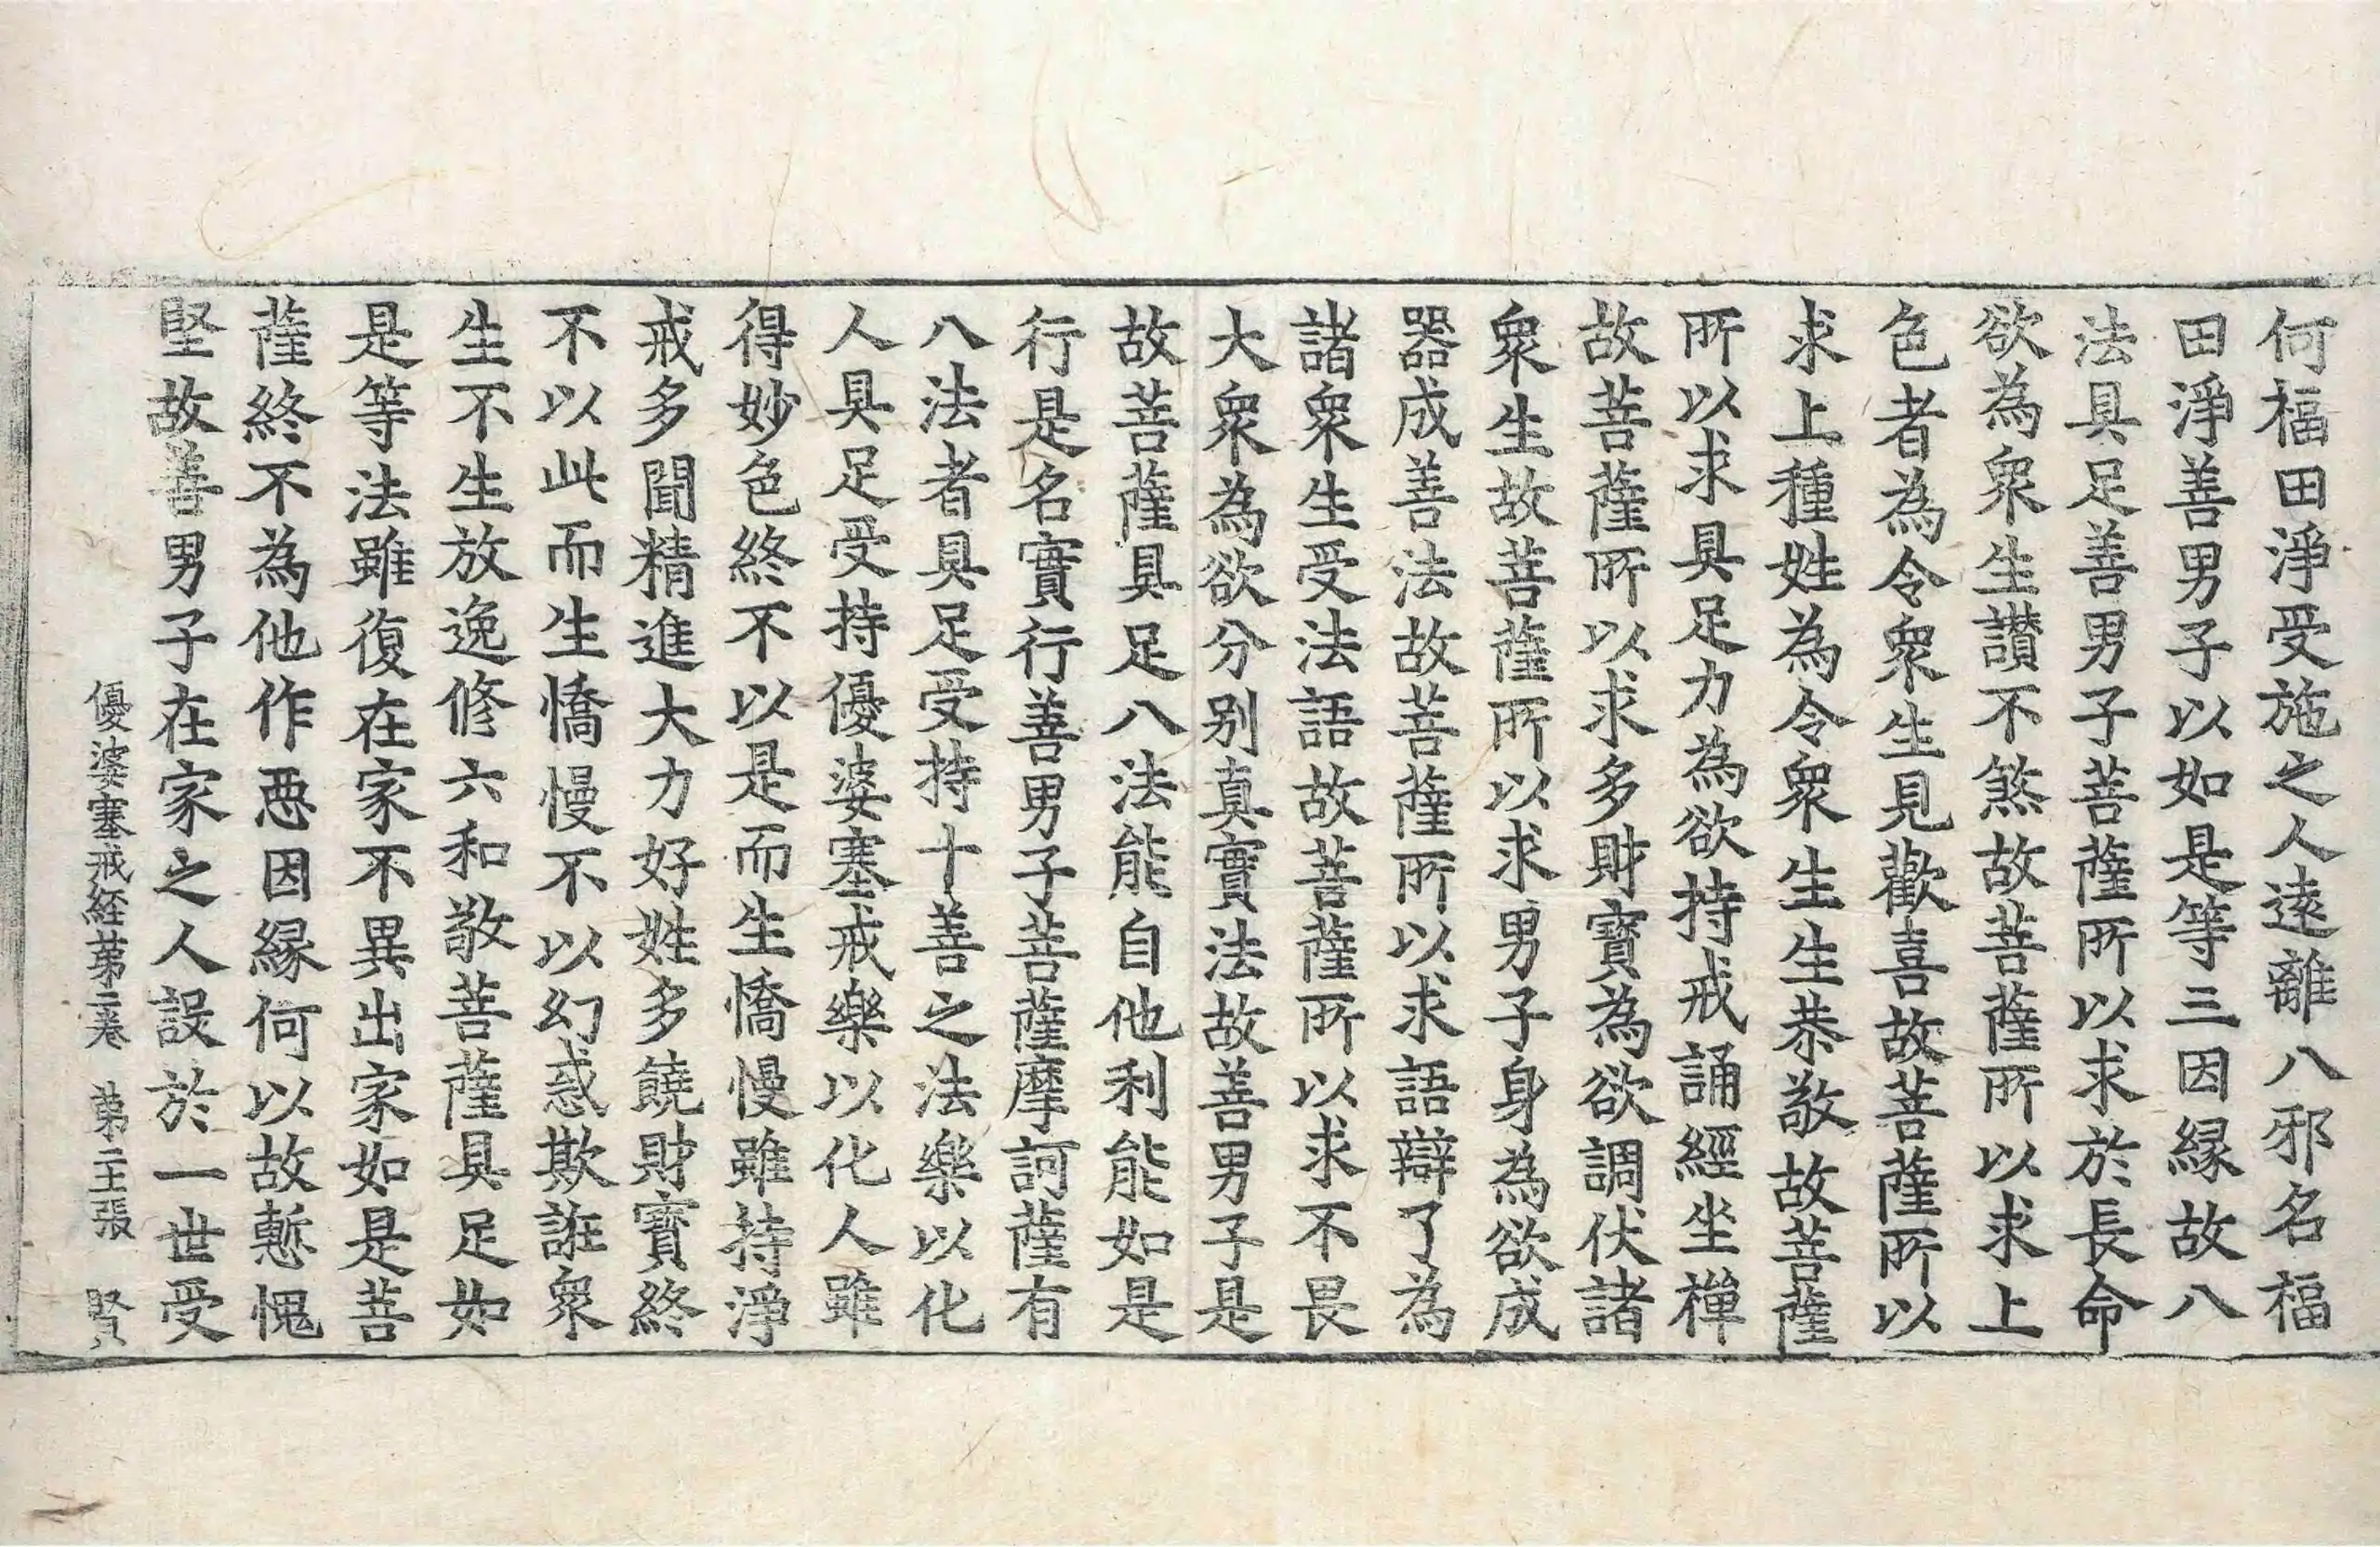 何福田淨受施之人遠離八邪名福
田淨善男子以如是等三因縁故八
法具足善男子菩薩所以求於長命
欲為衆生讃不煞故菩薩所以求上
色者為令衆生見歡喜故菩薩所以
求上種姓為令衆生生恭敬故菩薩
所以求具足力為欲持戒誦經坐禪
故菩薩所以求多財寶為欲調伏諸
衆生故菩薩所以求男子身為欲成
器成善法故菩薩所以求語辯了為
諸衆生受法語故菩薩所以求不畏
大衆為欲分別真實法故善男子是
故菩薩具足八法能自他利能如是
行是名實行善男子菩薩摩訶薩有
八法者具足受持十善之法樂以化
人具足受持優婆塞戒樂以化人雖
得妙色終不以是而生憍慢雖持淨
戒多聞精進大力好姓多饒財寶終
不以此而生憍慢不以幻惑欺誑衆
生不生放逸修六和敬菩薩具足如
是等法雖復在家不異出家如是菩
薩終不為他作惡因縁何以故慙愧
堅故善男子在家之人設於一世受
優婆塞戒経苐二巻 苐二十張 賢